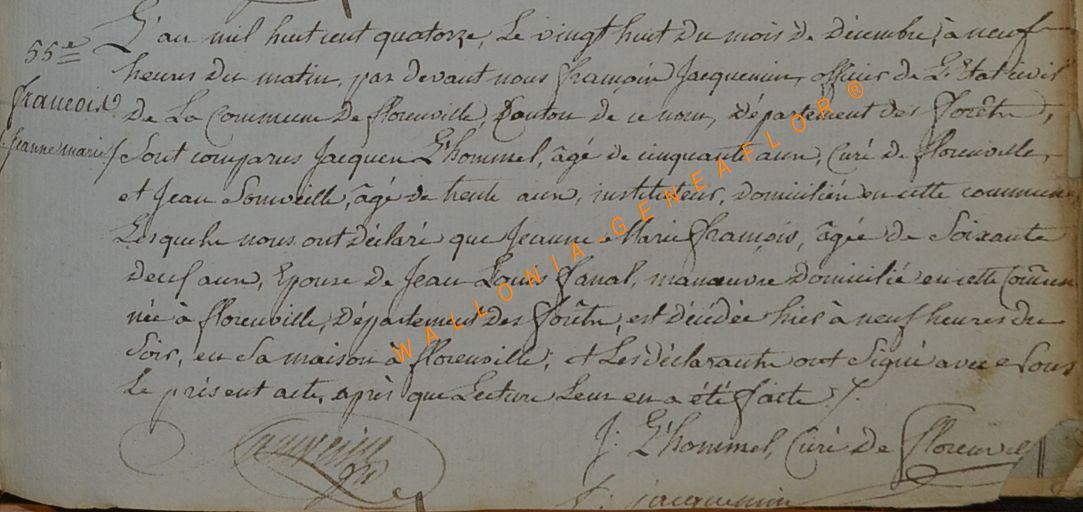 55e
françois
Jeanne marie /
L'an mil huit cent quatorze, Le vingt huit du mois de décembre, à neuf
heures du matin, par devant nous françois Jacquemin, officier de L'Etat civil
de La Commune de florenville, Canton de ce nom, département des forêts,
Sont comparus Jacques L'hommel, âgé de cinquante ans, Curé de florenville,
et Jean Sonveille, âgé de trente ans, instituteur, domiciliés en cette commune
Lesquels nous ont déclaré que Jeanne Marie françois, âgée de Soixante
deux ans, Epouse de Jean Louis fanal, manœuvre domicilié en cette Commune
née à florenville, département des forêts, est décédée hier à neuf heures du
Soir, en Sa maison à florenville, et Les déclarants ont Signé avec Nous
Le présent acte, après que Lecture Leur en a été faite /.
J: L'hommel, Curé de florenvil
f: jacquemin
WALLONIA-GENEAFLOR®